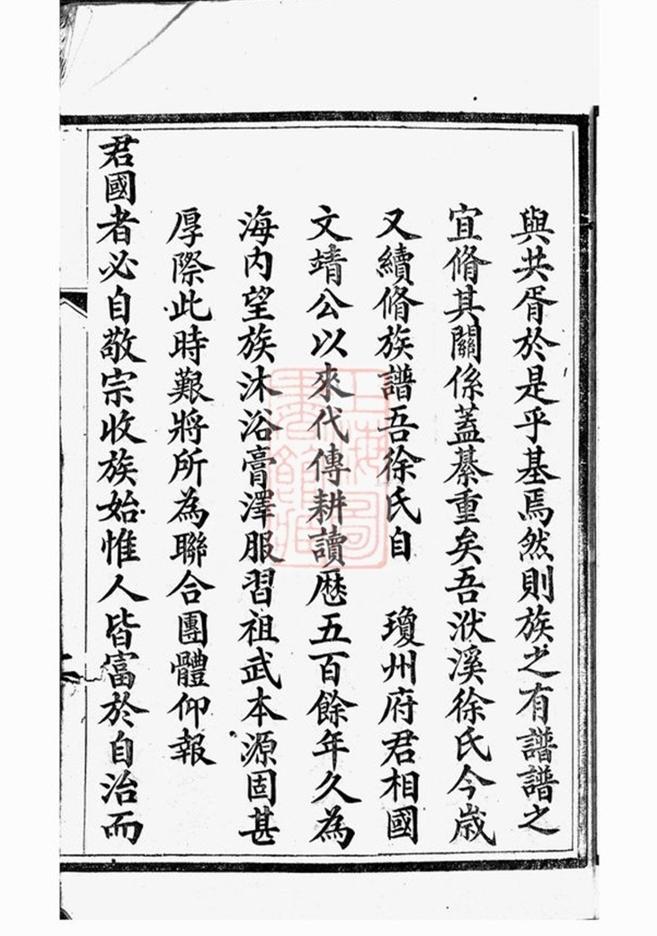 與共胥於是乎基焉然則族之有譜譜之
宜脩其關係蓋綦重矣吾洑溪徐氏今歲
又續脩族譜吾徐氏自　瓊州府君相國
文靖公以來代傳耕讀歷五百餘年久為
海內望族沐浴膏澤服習祖武本源固甚
厚際此時艱將所為聯合團體仰報
君國者必自敬宗收族始惟人皆富於自治而
上海圖
書館藏